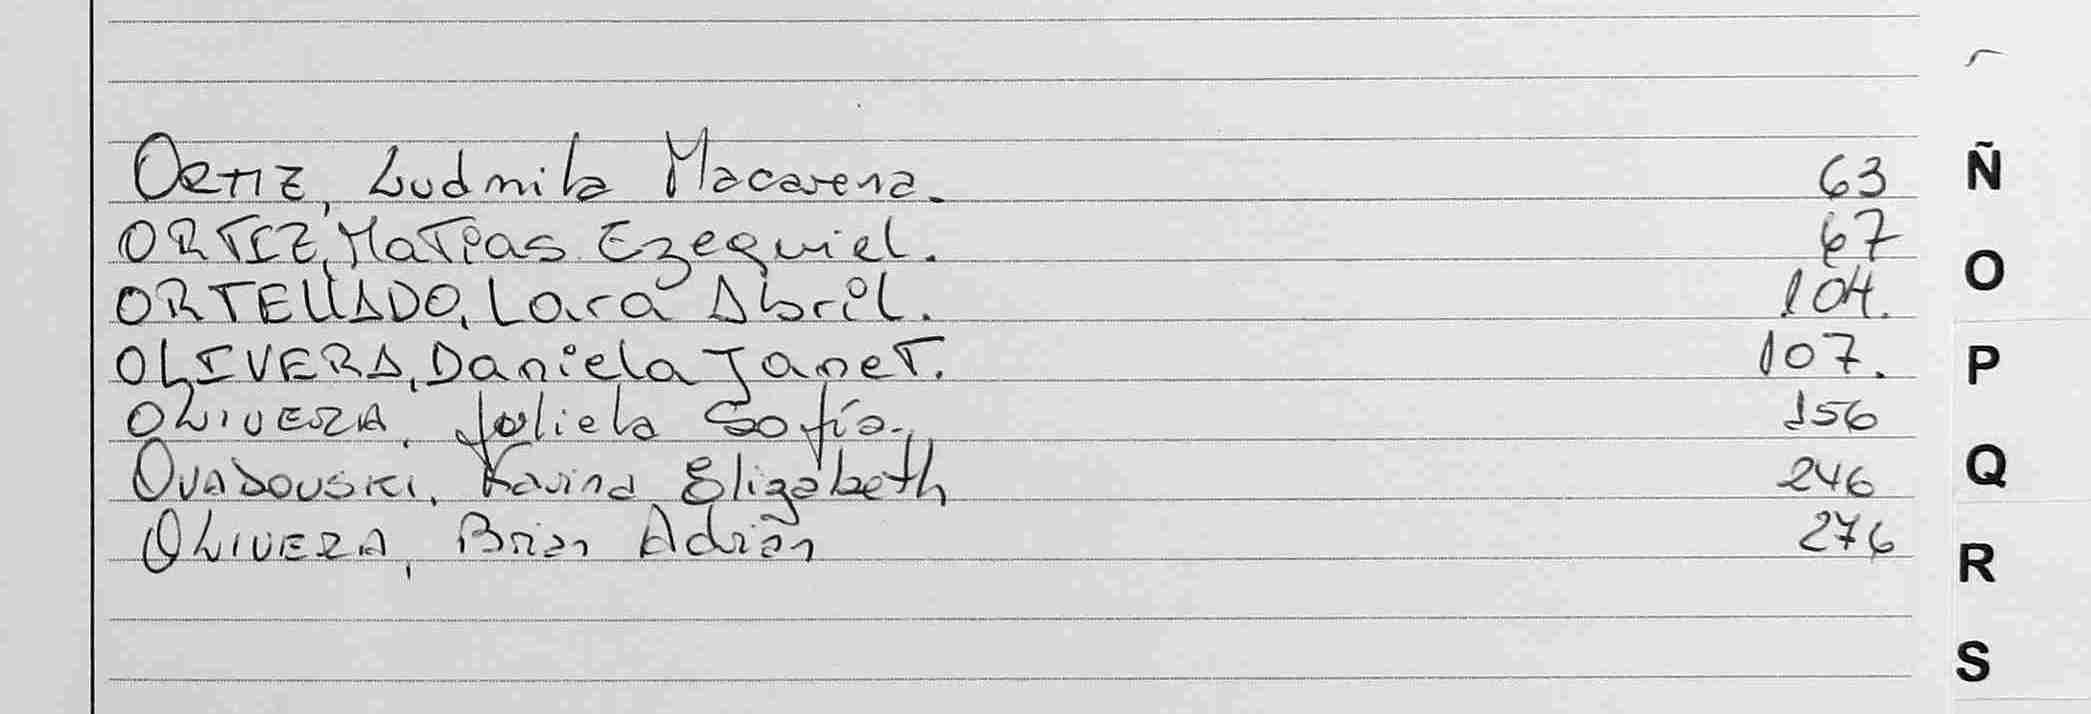 Ortiz, Ludmila Macarena. 63
ORTIZ, Matias Ezequiel. 67
ORTELLADO, Lara Abril. 104.
OLIVERA, Daniela Janet. 107.
OLIVERA, Julieta Sofía. 156
Karina Elizabeth 246
OLIVERA, Brian Adrián 276
Ñ
O
P
Q
R
S